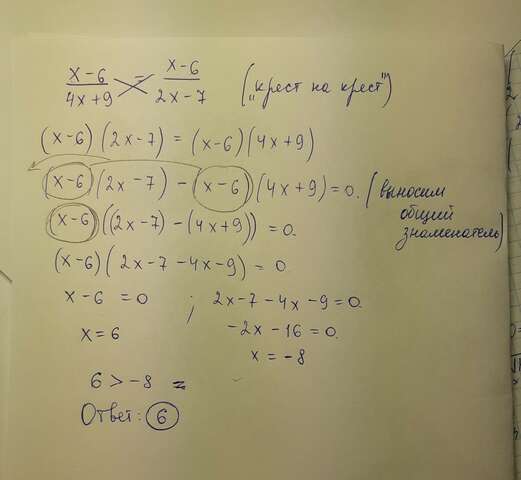 (x-6)/(4x+9) = (x-6)/(2x-7) („крест на крест")
(x-6)(2x-7) = (x-6)(4x+9)
(x-6)(2x-7) - (x-6)(4x+9) = 0. (выносим
общий
знаменатель)
(x-6)((2x-7) - (4x+9)) = 0.
(x-6)(2x-7-4x-9) = 0
x-6 = 0 ; 2x-7-4x-9=0.
x=6 -2x-16=0.
x = -8
6 > -8
Ответ: 6